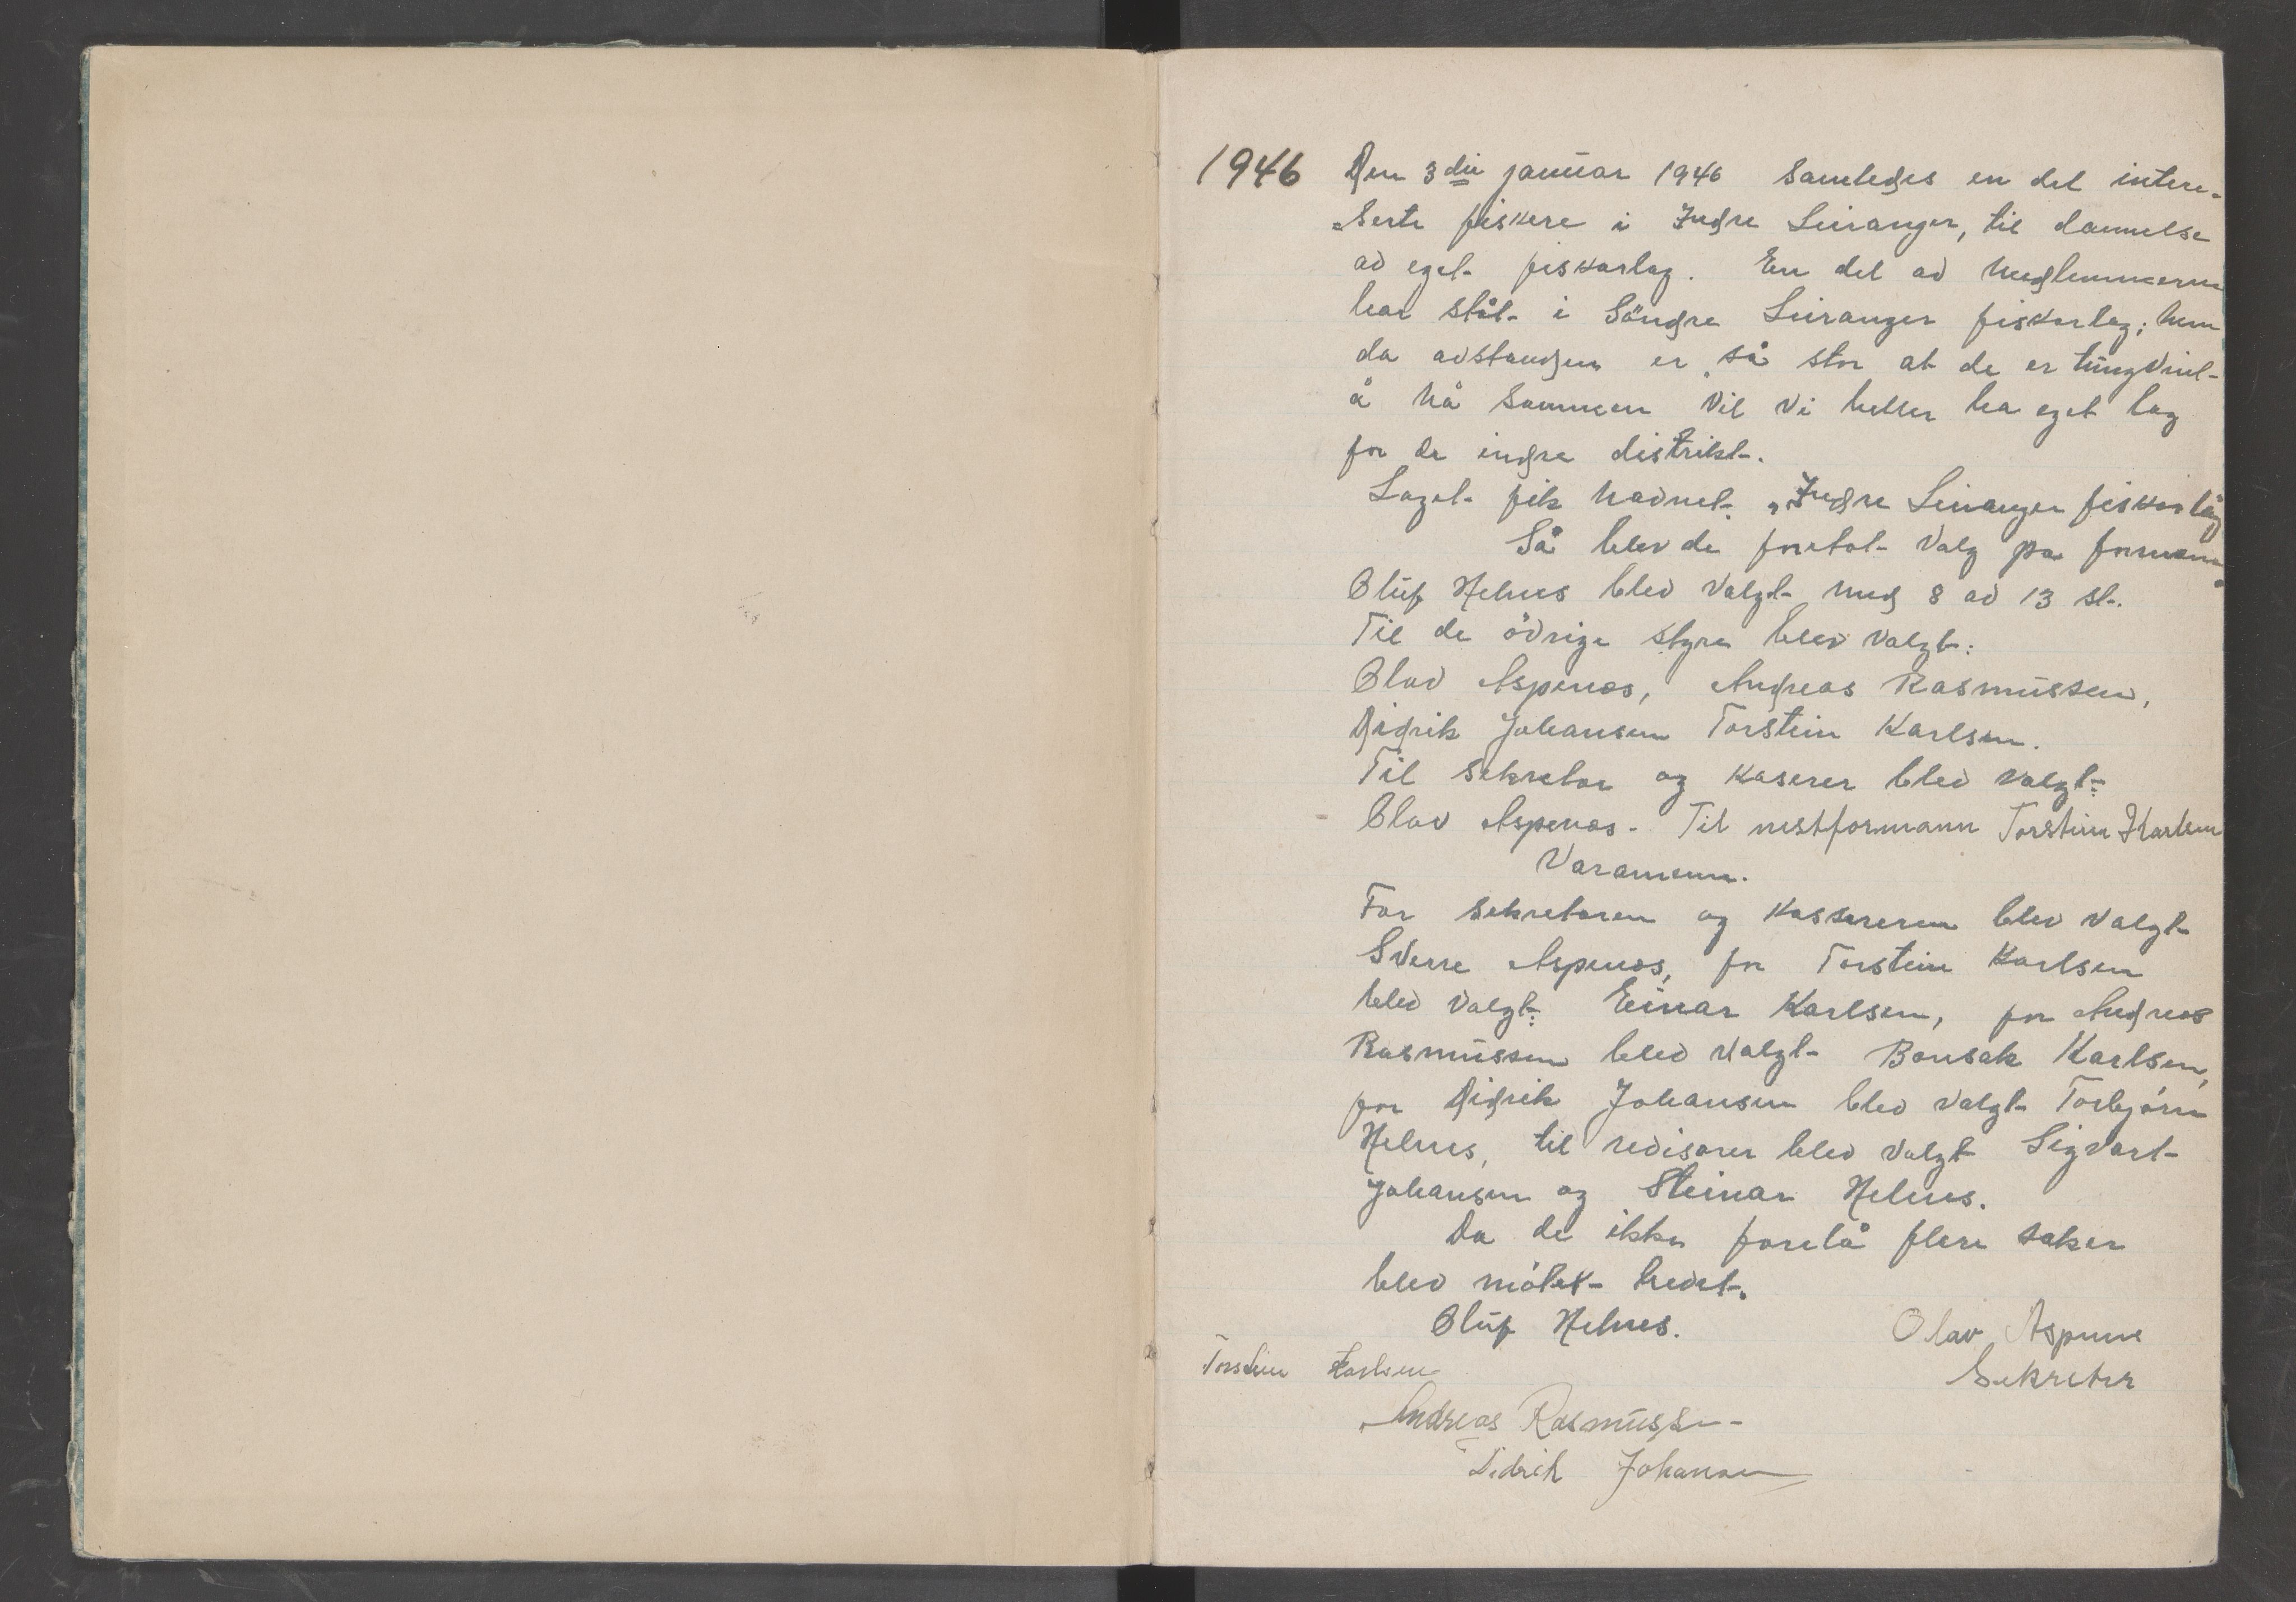 1946 Den 3die januar 1946 samledes en del intere-
serte fiskere i Indre Leiranger, til dannelse
av eget fiskarlag. En del av medlemmerne
har stått i Söndre Leiranger fiskarlag; men
da avstanden er så stor at de er tungvint
å nå sammen vil vi heller ha eget lag
for de indre distrikt.
Laget fik navnet „Indre Leiranger fiskarlag
Så blev de foretat valg på formann
Oluf Helnes blev valgt med 8 av 13 st.
Til de övrige styre blev valgt:
Olav Aspenes, Andreas Rasmussen,
Didrik Johansen Torstein Karlsen.
Til sekretær og kaserer blev valgt:
Olav Aspenes. Til nestformann Torstein Karlsen
Varamenn.
For sekretæren og kassereren blev valgt
Sverre Aspenes, for Torstein Karlsen
blev valgt: Einar Karlsen, for Andreas
Rasmussen blev valgt Bonsak Karlsen,
for Didrik Johansen blev valgt Torbjörn
Helnes, til revisorer blev valgt Sigvart
Johansen og Steinar Helnes.
Da de ikke forelå flere saker
blev mötet hevet.
Oluf Helnes. Olav Aspenes
Torstein Karlsen Sekretær
Andreas Rasmussen
Didrik Johansen